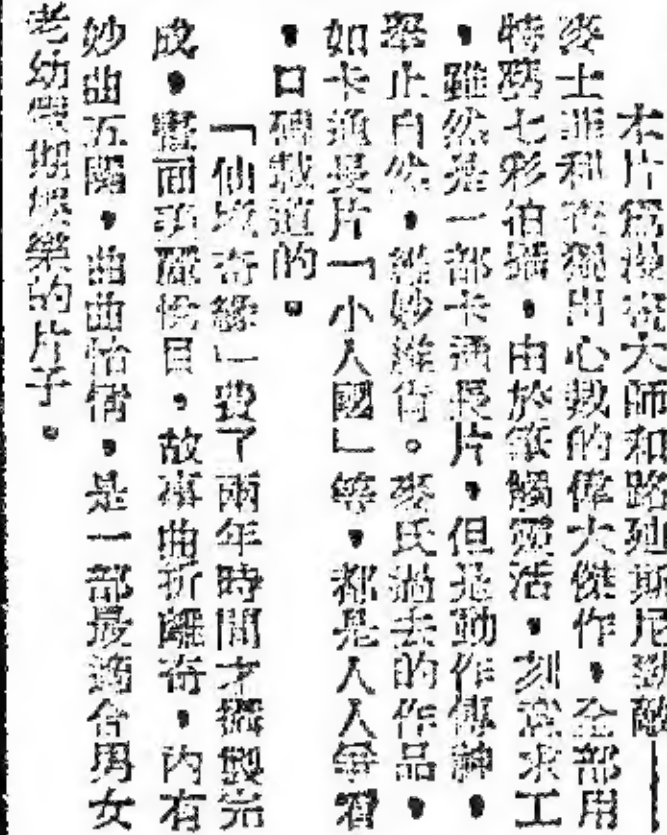 本片為漫畫大師和路廸斯尼勁敵——
麥士菲和在獨出心裁的偉大傑作，全部用
特務七彩拍攝，由於筆觸靈活，刻意求工
，雖然是一部卡通長片，但是動作傳神，
舉止自然，維妙維肖。麥氏過去的作品，
如卡通長片「小人國」等，都是人人每看
，口碑載道的。
「仙境奇緣」費了兩年時間才攝製完
成，畫面美麗悅目，故事曲折離奇，內有
妙曲五闋，曲曲怡情，是一部最適合男女
老幼假期娛樂的片子。